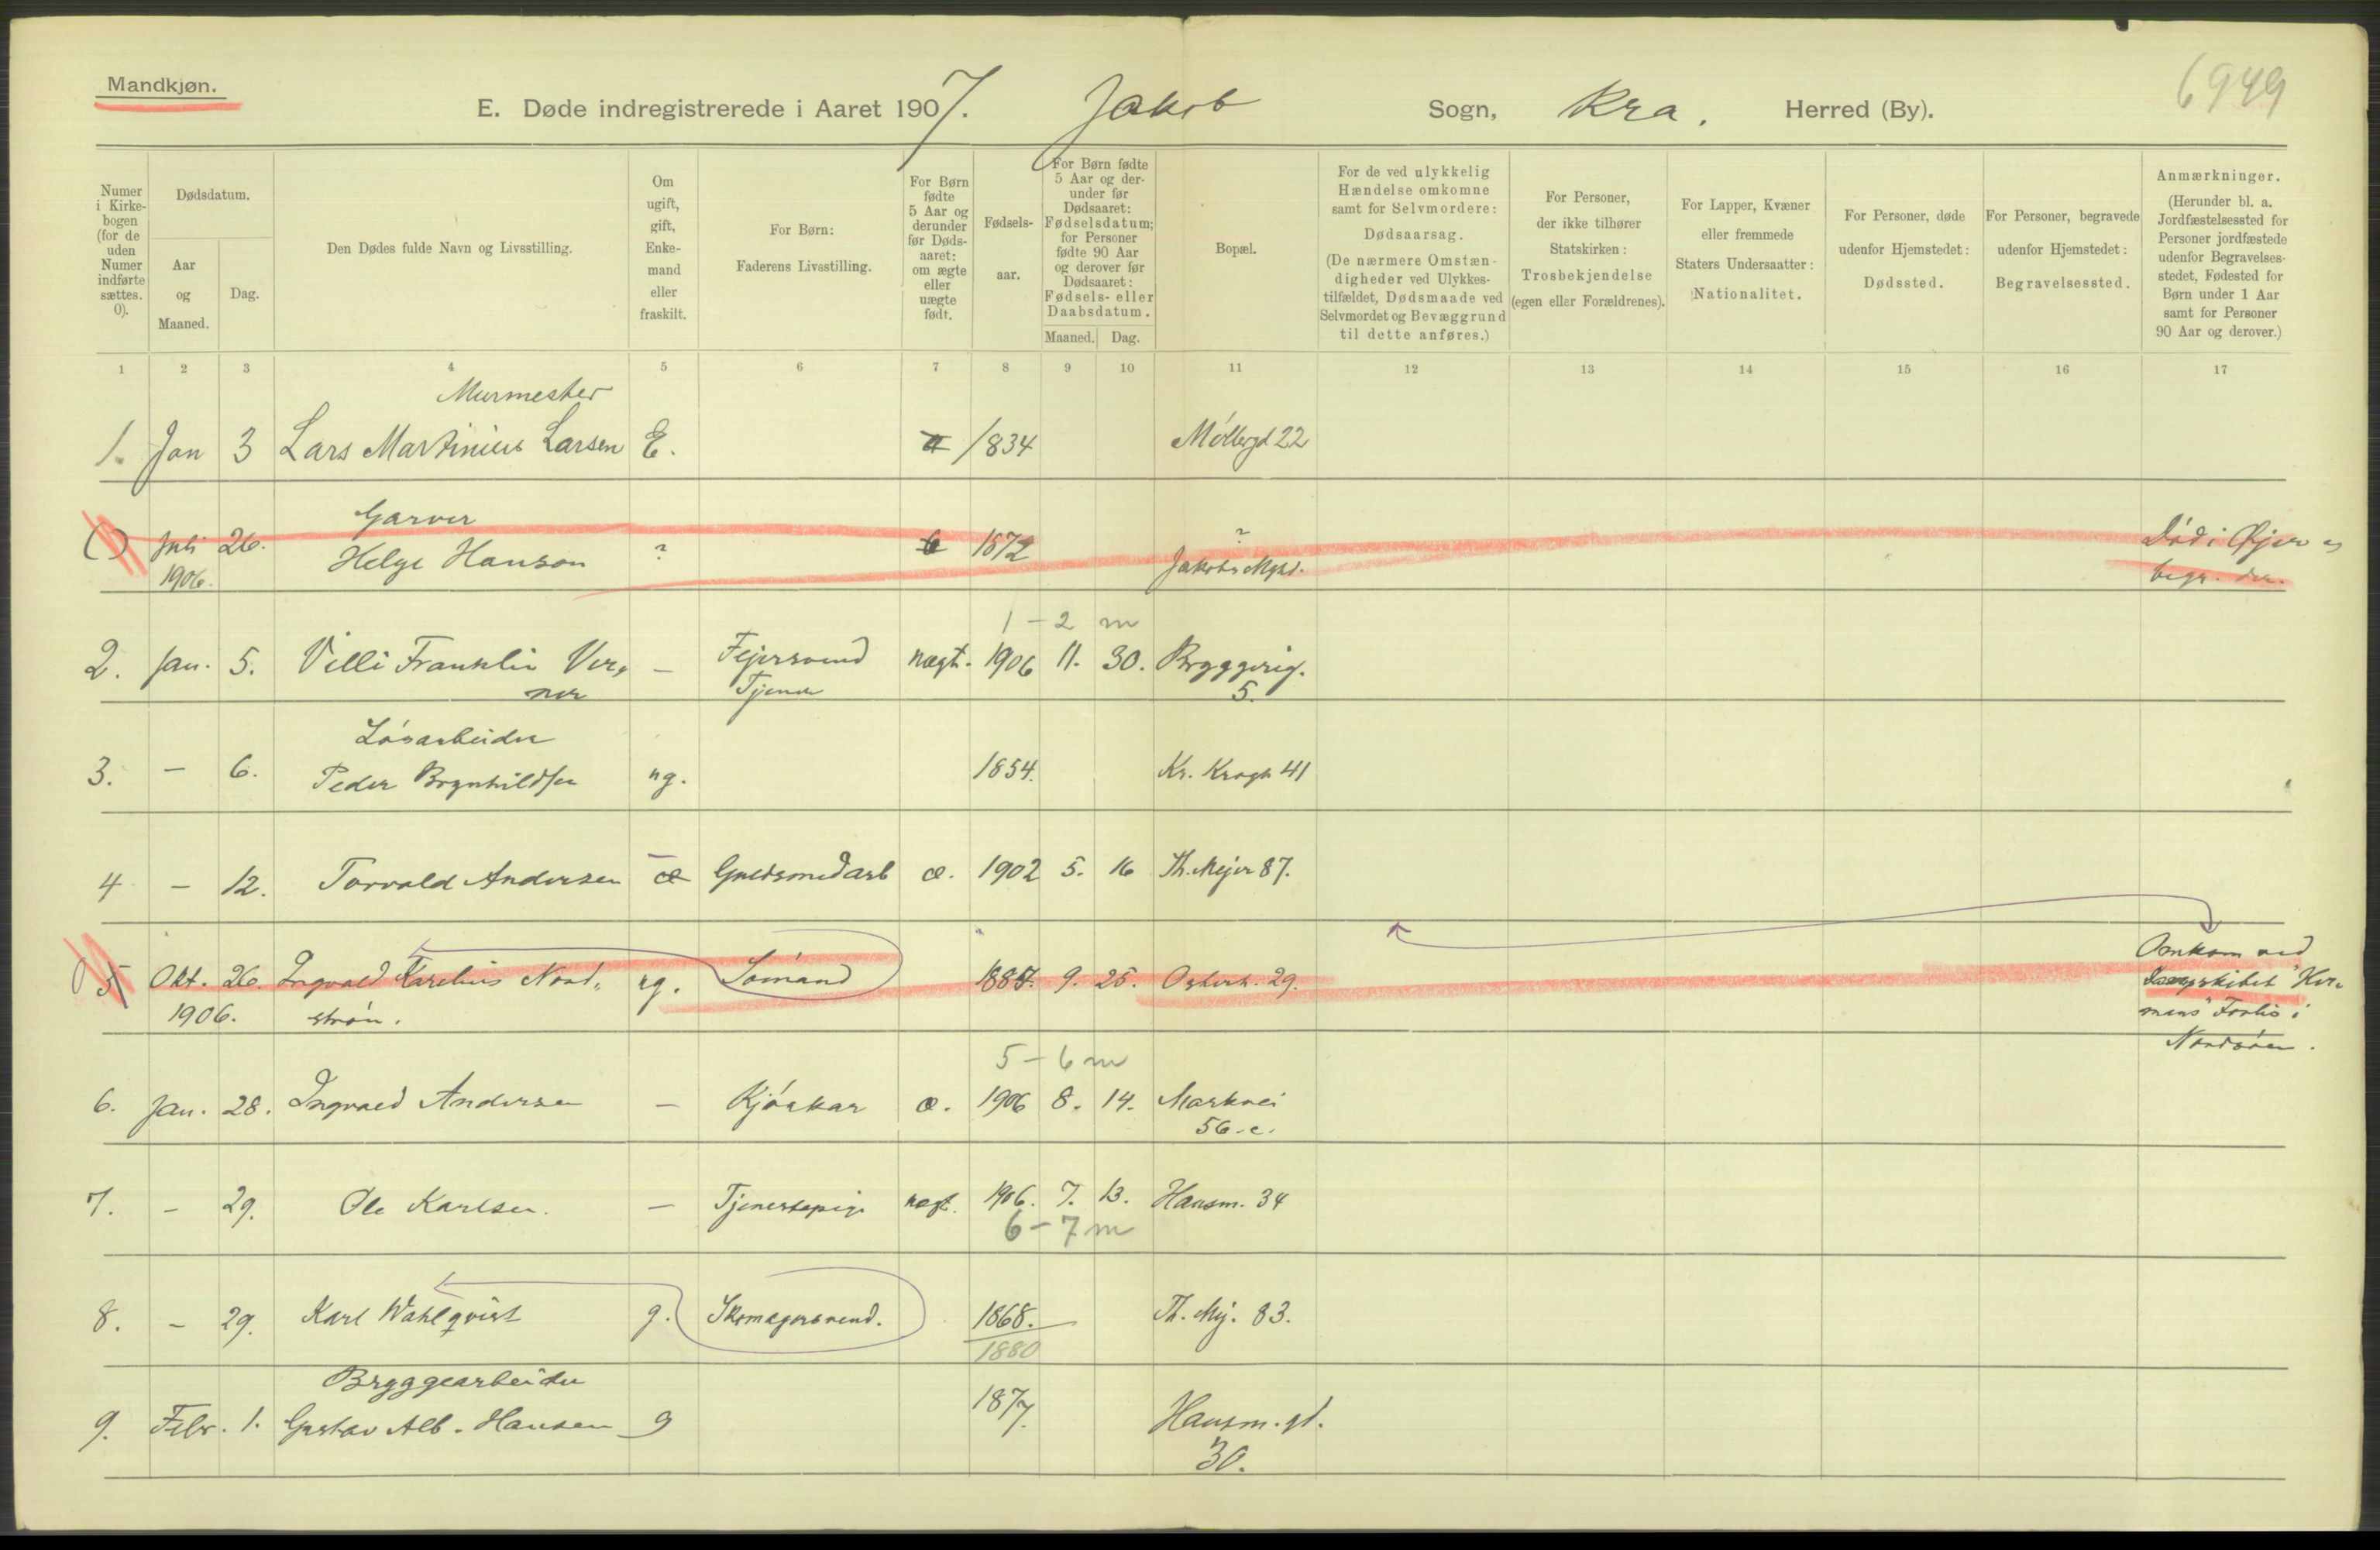 Mandkjøn.
6949
E. Døde indregistrerede i Aaret 1907. Jakob Sogn, Kra. Herred (By).
Numer i Kirkebogen (for de uden Numer indførte sættes. 0).
Dødsdatum.
Aar og Maaned.
Dag.
Den Dødes fulde Navn og Livsstilling.
Om ugift, gift, Enkemand eller fraskilt.
For Børn: Faderens Livsstilling.
For Børn fødte 5 Aar og derunder før Dødsaaret: om ægte eller uægte født.
Fødselsaar.
For Børn fødte 5 Aar og derunder før Dødsaaret: Fødselsdatum; for Personer fødte 90 Aar og derover før Dødsaaret: Fødsels- eller Daabsdatum.
Maaned. Dag.
Bopæl.
For de ved ulykkelig Hændelse omkomne samt for Selvmordere: Dødsaarsag. (De nærmere Omstændigheder ved Ulykkestilfældet, Dødsmaade ved Selvmordet og Bevæggrund til dette anføres.)
For Personer, der ikke tilhører Statskirken: Trosbekjendelse (egen eller Forældrenes).
For Lapper, Kvæner eller fremmede Staters Undersaatter: Nationalitet.
For Personer, døde udenfor Hjemstedet: Dødssted.
For Personer, begravede udenfor Hjemstedet: Begravelsessted.
Anmærkninger. (Herunder bl. a. Jordfæstelsessted for Personer jordfæstede udenfor Begravelsesstedet, Fødested for Børn under 1 Aar samt for Personer 90 Aar og derover.)
1 2 3 4 5 6 7 8 9 10 11 12 13 14 15 16 17
Murmester
1. Jan 3 Lars Martinius Larsen E. 1834 Møllergd 22
Garver ?
() Juli 26. Helge Hanson ? 1872 Jakobs Mgh. Død i Øjer
1906. begr. der.
1 - 2 m
2. Jan. 5. Villi Franklin Ver, — Fejersvend uægt. 1906 11. 30. Bryggerig.
ner Tjener 5.
Løsarbeider
3. — 6. Peder Brynhildsen ug. 1854. Kr. Krogh 41
4 — 12. Torvald Andersen — Guldsmedarb æ. 1902 5. 16 Th. Mejer 87.
Omkom ved
0 5 Okt. 26. Ingvald Karelius Nord, ug. Sømand 1885. 9. 25. Osterh. 29. "Her,
1906. strøm. mans" Forlis i
Nordsøen.
5 - 6 m
6. Jan. 28. Ingvald Andersen — Kjørekar æ. 1906 8. 14. Markvei
56.c.
7. — 29. Ole Karlsen. — Tjenestepige uægt. 1906. 7. 13. Hausm. 34
6 - 7 m
8. — 29. Karl Wahlqvist g. Skomagersvend. 1868. Th. Mej. 83.
1880
Bryggearbeider
9. Febr. 1. Gustav Alb. Hansen g 1877. Hausm. gd.
30.